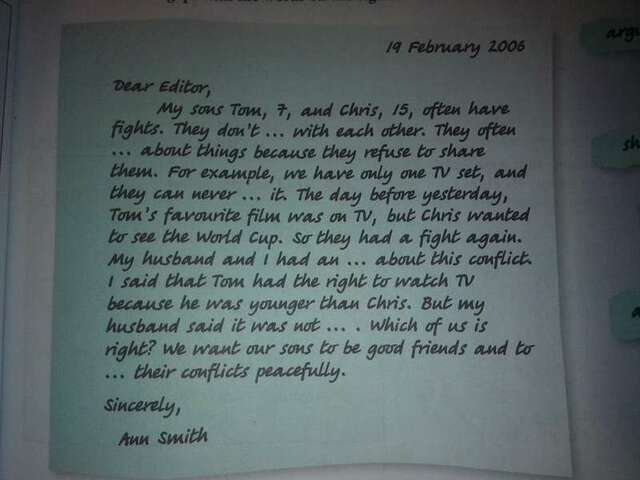 19 February 2006
Dear Editor,
My sons Tom, 7, and Chris, 15, often have
fights. They don't ... with each other. They often
... about things because they refuse to share
them. For example, we have only one TV set, and
they can never ... it. The day before yesterday,
Tom's favourite film was on TV, but Chris wanted
to see the World Cup. So they had a fight again.
My husband and I had an ... about this conflict.
I said that Tom had the right to watch TV
because he was younger than Chris. But my
husband said it was not ... . Which of us is
right? We want our sons to be good friends and to
... their conflicts peacefully.
Sincerely,
Ann Smith